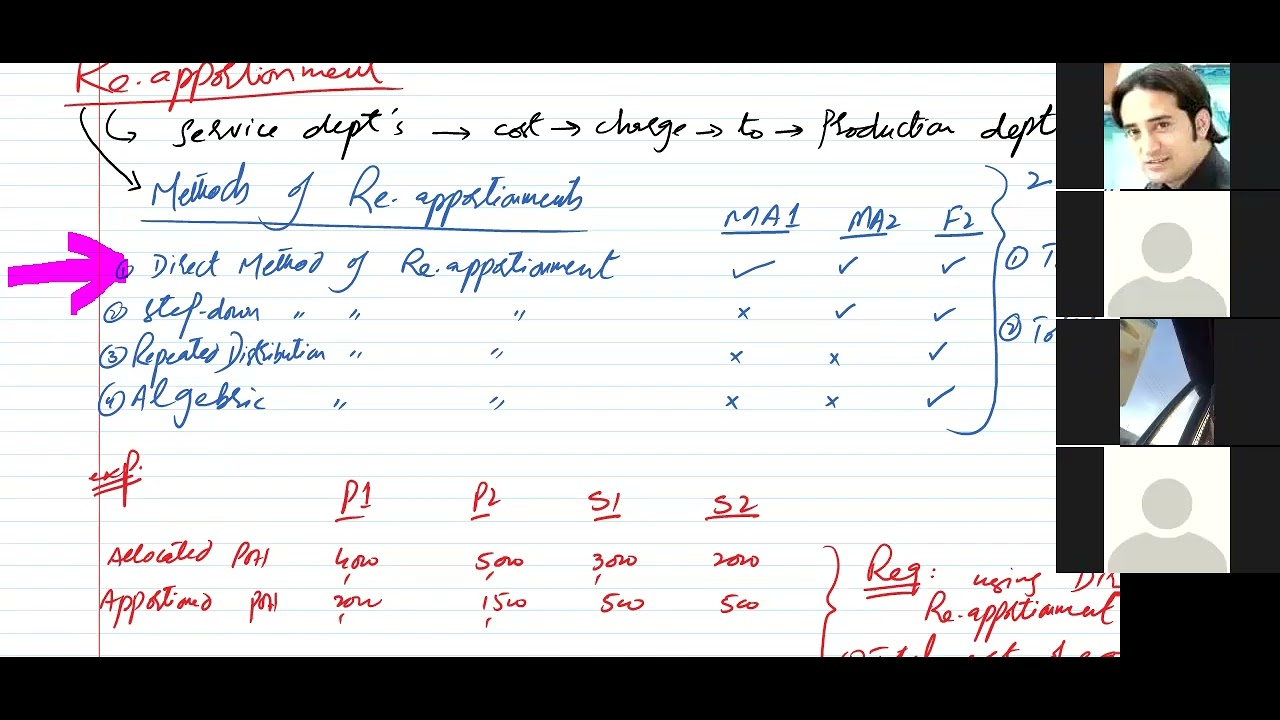 Re.apportionment
Service dept's → cost → charge → to → Production dept
Methods of Re.apportionments
MA1 MA2 F2
① Direct Method of Re.apportionment ✓ ✓ ✓
② Step-down " " " x ✓ ✓
③ Repeated Distribution " " x x ✓
④ Algebric " " x x ✓
2
① T
② To
exp:
P1 P2 S1 S2
Allocated POH 4,000 5,000 3,000 2000
Apportioned POH 2,000 1,500 500 500
Req: using Dir
Re.apportionment